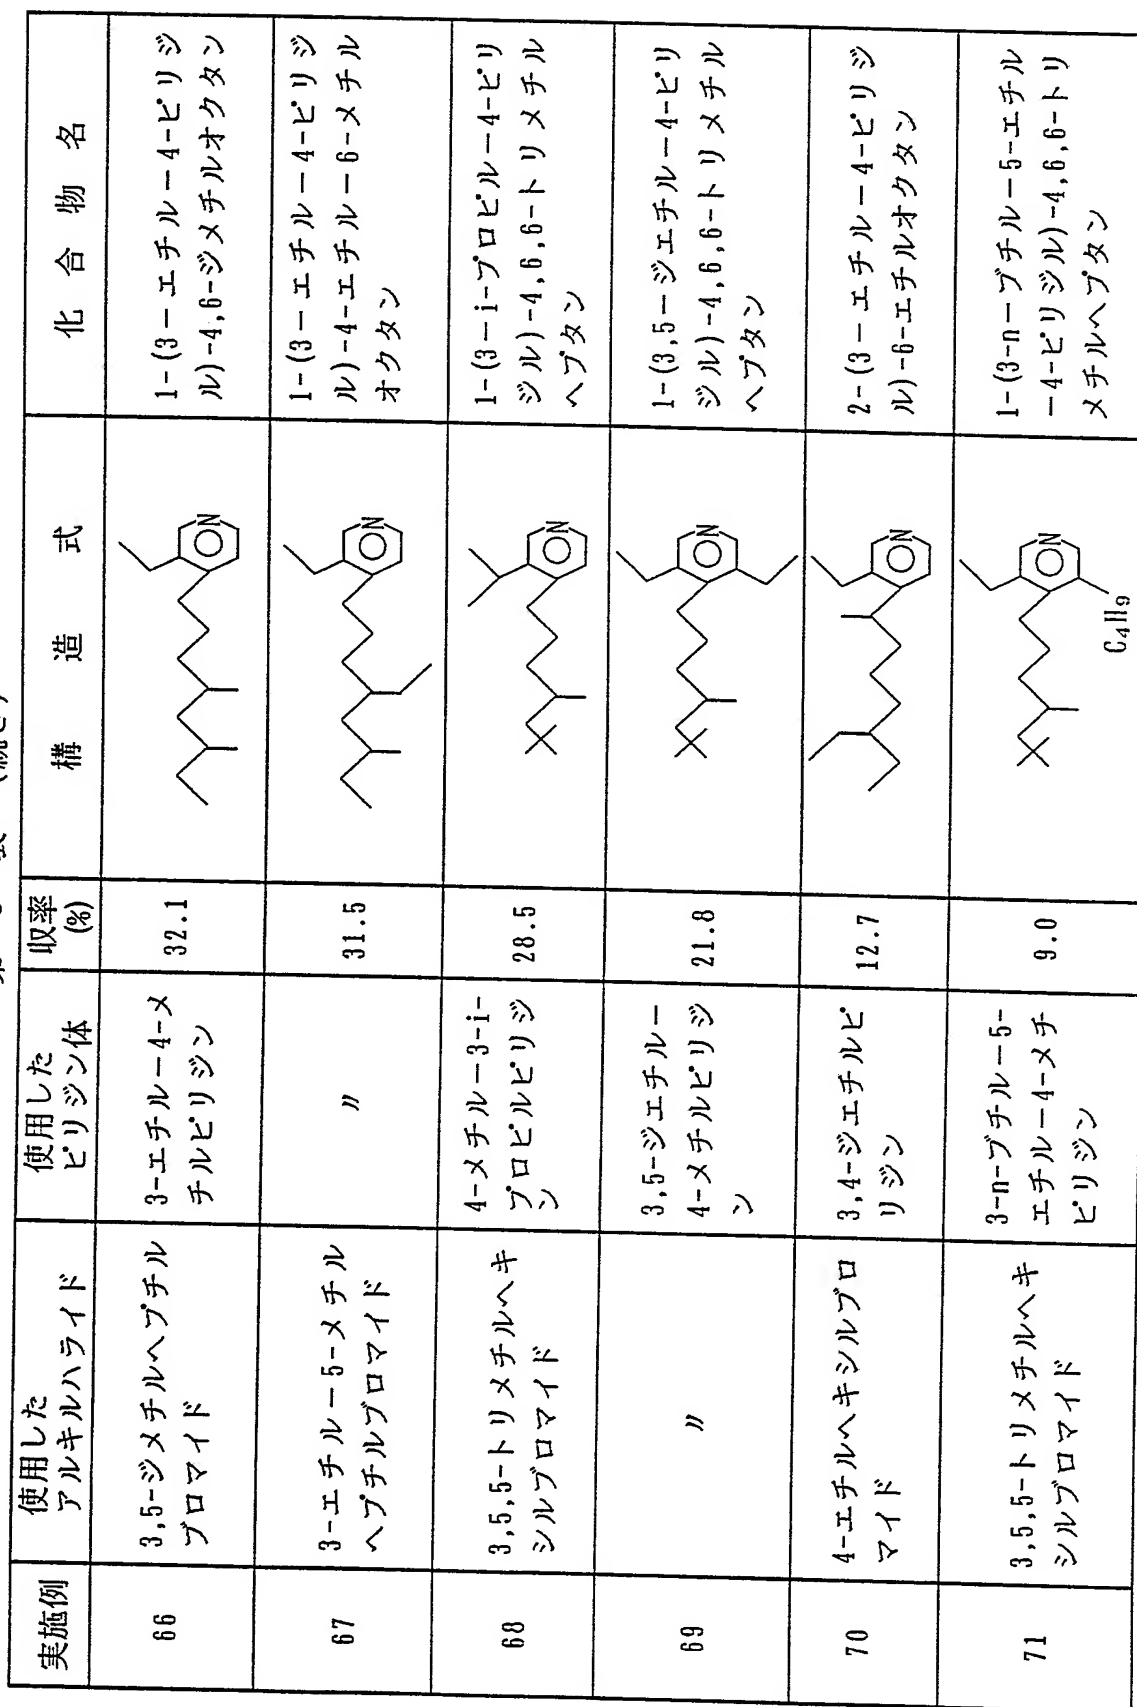 表 (続き)
実施例
使用した
アルキルハライド
使用した
ピリジン体
収率
(%)
構 造 式
化 合 物 名
66
3,5-ジメチルヘプチル
ブロマイド
3-エチル－4-メ
チルピリジン
32.1
N
1-(3－エチル－4-ピリジ
ル)-4,6-ジメチルオクタン
67
3-エチル－5-メチル
ヘプチルブロマイド
〃
31.5
N
1-(3－エチル－4-ピリジ
ル)-4-エチル－6-メチル
オクタン
68
3,5,5-トリメチルヘキ
シルブロマイド
4-メチル－3-i-
プロピルピリジ
ン
28.5
N
1-(3－i-プロピル－4-ピリ
ジル)-4,6,6-トリメチル
ヘプタン
69
〃
3,5-ジエチル－
4-メチルピリジ
ン
21.8
N
1-(3,5－ジエチル－4-ピリ
ジル)-4,6,6-トリメチル
ヘプタン
70
4-エチルヘキシルブロ
マイド
3,4-ジエチルピ
リジン
12.7
N
2-(3－エチル－4-ピリジ
ル)-6-エチルオクタン
71
3,5,5-トリメチルヘキ
シルブロマイド
3-n-ブチル－5-
エチル－4-メチ
ルピリジン
9.0
N
C4H9
1-(3-n－ブチル－5-エチル
－4-ピリジル)-4,6,6-トリ
メチルヘプタン